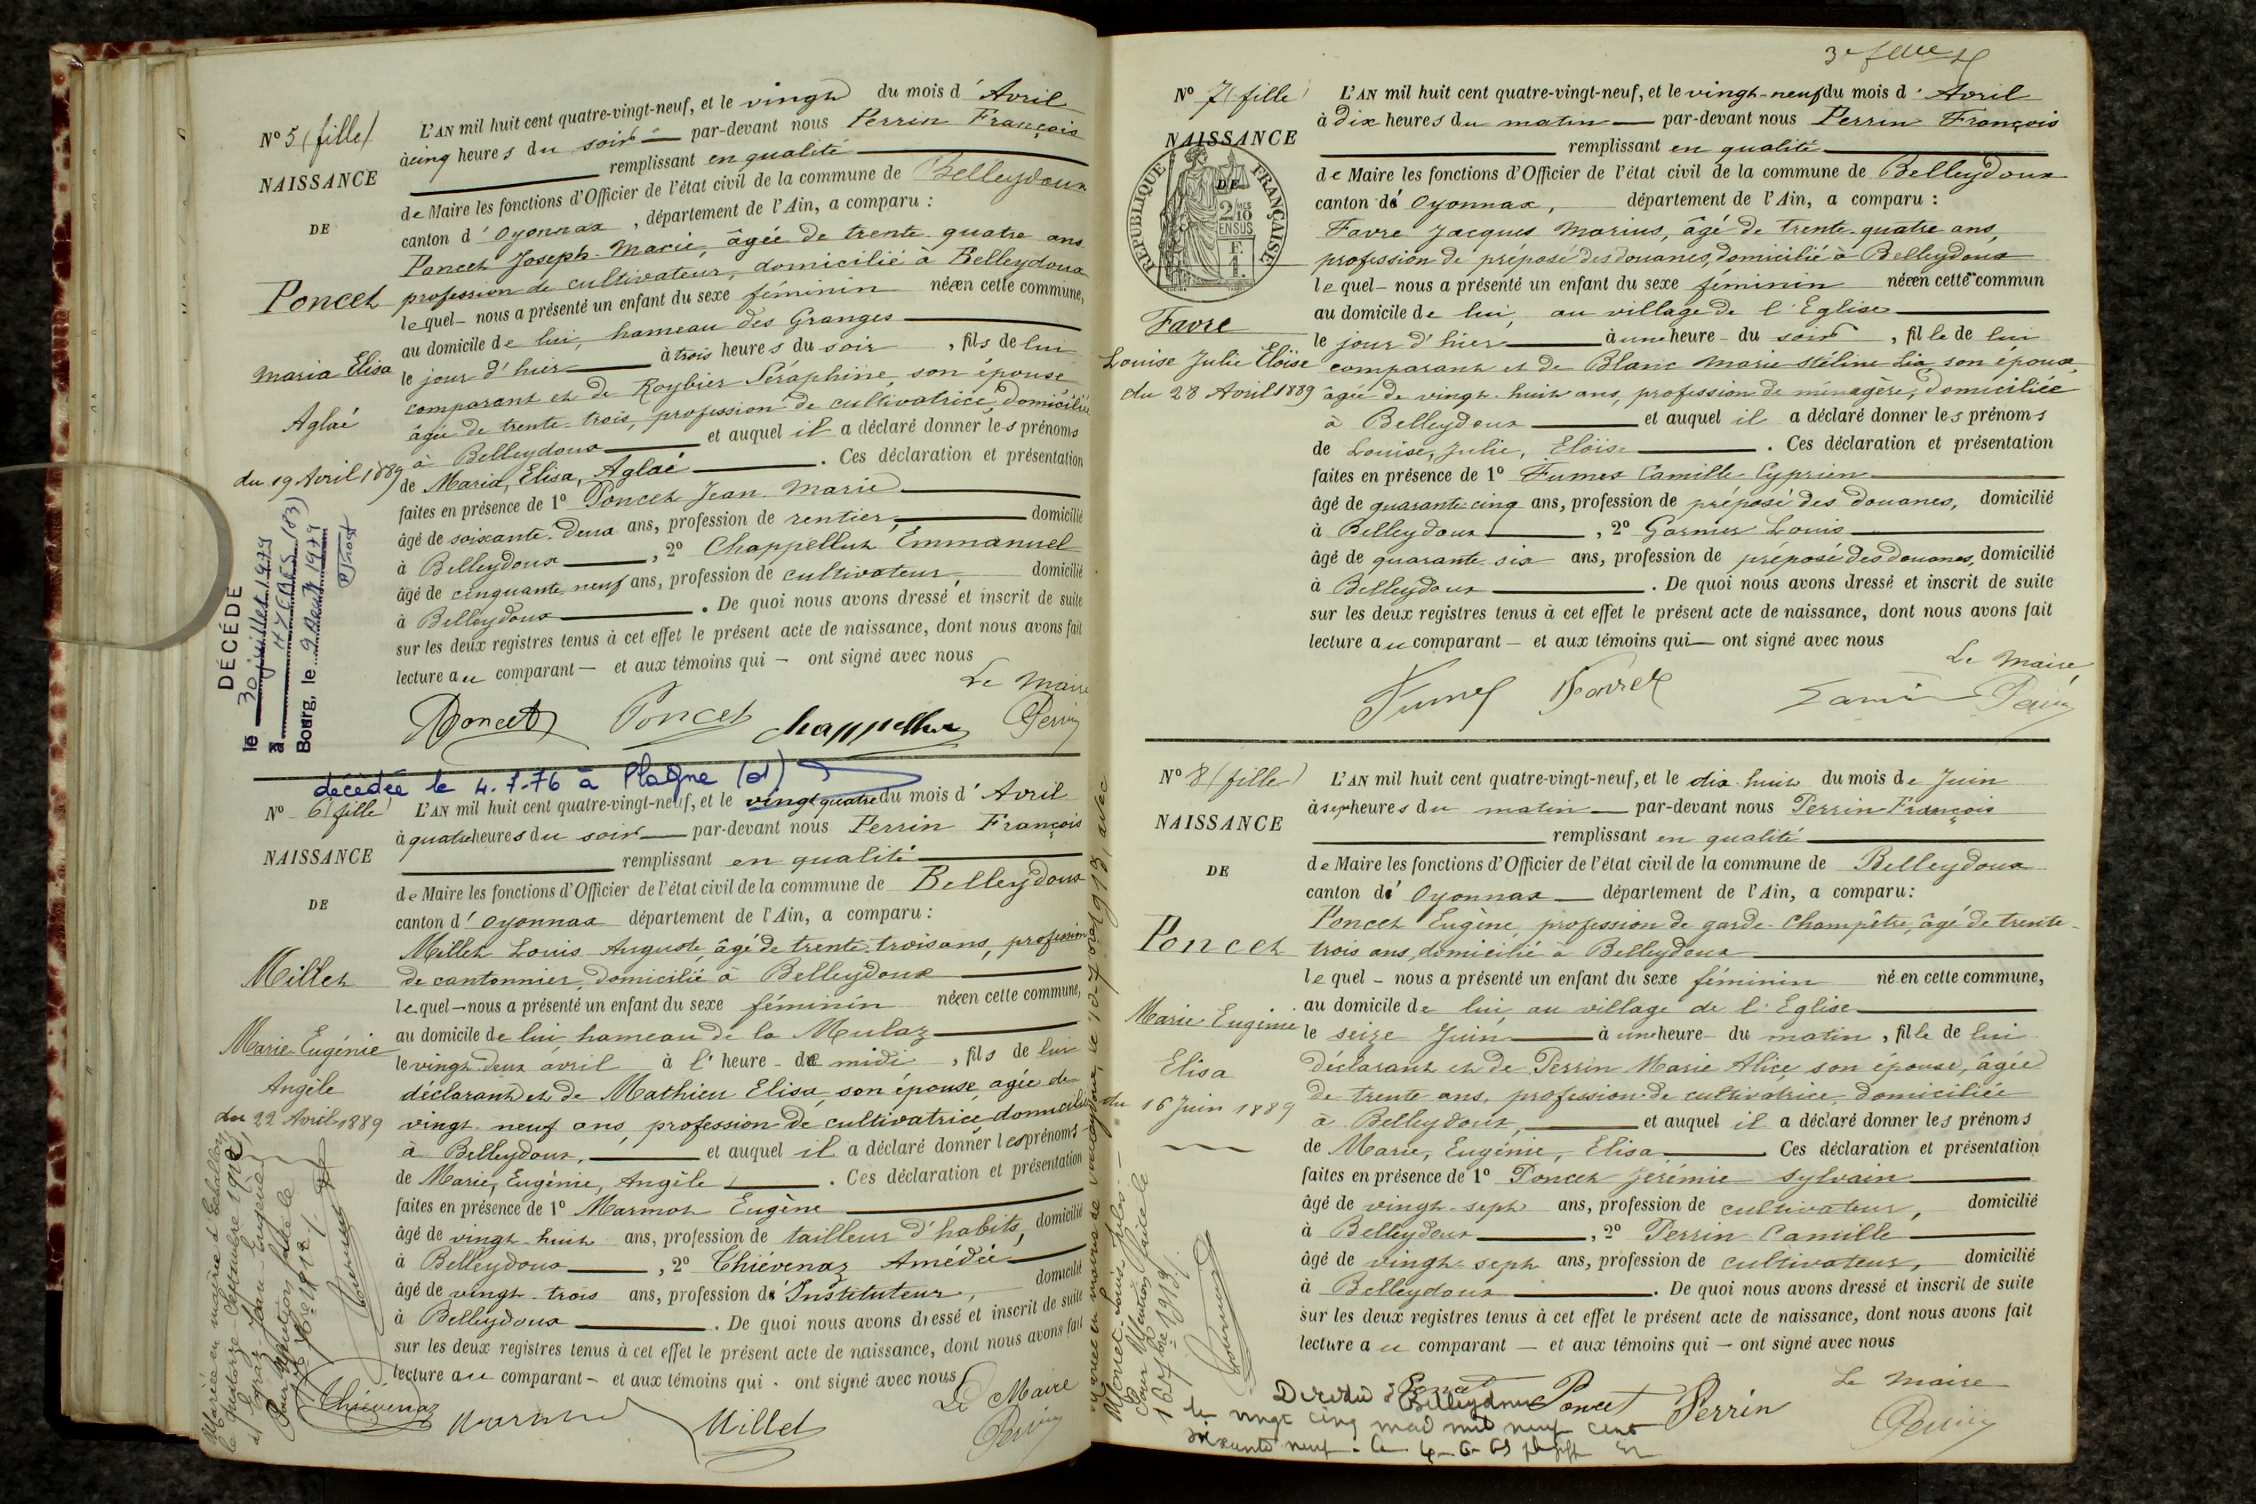 N° 5 (fille)
NAISSANCE
DE
Poncet
Maria Elisa
Aglaé
du 19 Avril 1889
DÉCÉDÉ
le 30 juillet 1979
à HYERES (83)
Bourg, le 9 Août 1979
L'AN mil huit cent quatre-vingt-neuf, et le vingt du mois d'Avril
à cinq heures du soir par-devant nous Perrin François
remplissant en qualité
de Maire les fonctions d'Officier de l'état civil de la commune de Belleydoux
canton d'Oyonnax, département de l'Ain, a comparu :
Poncet Joseph-Marie, âgée de trente-quatre ans
profession de cultivateur, domicilié à Belleydoux
lequel nous a présenté un enfant du sexe féminin née en cette commune,
au domicile de lui, hameau des Granges
le jour d'hier à trois heures du soir, fils de lui
comparant et de Roybier Séraphine, son épouse
âgée de trente-trois, profession de cultivatrice, domiciliée
à Belleydoux et auquel il a déclaré donner les prénoms
de Maria, Elisa, Aglaé. Ces déclaration et présentation
faites en présence de 1° Poncet Jean-Marie
âgé de soixante-deux ans, profession de rentier, domicilié
à Belleydoux, 2° Chappelluz Emmanuel
âgé de cinquante-neuf ans, profession de cultivateur, domicilié
à Belleydoux. De quoi nous avons dressé et inscrit de suite
sur les deux registres tenus à cet effet le présent acte de naissance, dont nous avons fait
lecture au comparant et aux témoins qui ont signé avec nous
Le Maire
Poncet Poncet Chappelluz Perrin
décédée le 4.7.76 à Plagne (01)
N° 6 (fille)
NAISSANCE
DE
Millet
Marie-Eugénie
Angèle
du 22 Avril 1889
Mariée en mairie d'Echallon
le quatorze Septembre 1912
L'AN mil huit cent quatre-vingt-neuf, et le vingt quatre du mois d'Avril
à quatre heures du soir par-devant nous Perrin François
remplissant en qualité
de Maire les fonctions d'Officier de l'état civil de la commune de Belleydoux
canton d'Oyonnax département de l'Ain, a comparu :
Millet Louis Auguste, âgé de trente-trois ans, profession
de cantonnier, domicilié à Belleydoux
lequel nous a présenté un enfant du sexe féminin née en cette commune,
au domicile de lui hameau de la Mulaz
le vingt-deux avril à l'heure de midi, fils de lui
déclarant et de Mathieu Elisa, son épouse, agée de
vingt-neuf ans, profession de cultivatrice, domiciliée
à Belleydoux, et auquel il a déclaré donner les prénoms
de Marie, Eugénie, Angèle. Ces déclaration et présentation
faites en présence de 1° Marmot Eugène
âgé de vingt-huit ans, profession de tailleur d'habits, domicilié
à Belleydoux, 2° Thiévenaz Amédée
âgé de vingt-trois ans, profession d'Instituteur, domicilié
à Belleydoux. De quoi nous avons dressé et inscrit de suite
sur les deux registres tenus à cet effet le présent acte de naissance, dont nous avons fait
lecture au comparant et aux témoins qui ont signé avec nous
Le Maire
Thiévenaz Marmot Millet Perrin
N° 7 (fille)
NAISSANCE
DE
RÉPUBLIQUE FRANÇAISE
2/10 MES
EN SUS
Favre
Louise Julie Eloïse
du 28 Avril 1889
L'AN mil huit cent quatre-vingt-neuf, et le vingt-neuf du mois d'Avril
à dix heures du matin par-devant nous Perrin François
remplissant en qualité
de Maire les fonctions d'Officier de l'état civil de la commune de Belleydoux
canton d'Oyonnax, département de l'Ain, a comparu :
Favre Jacques Marius, âgé de trente-quatre ans,
profession de préposé des douanes, domicilié à Belleydoux
lequel nous a présenté un enfant du sexe féminin née en cette commun
au domicile de lui, au village de l'Eglise
le jour d'hier à une heure du soir, fille de lui
comparant et de Blanc Marie Stéline Lia, son épouse,
âgée de vingt-huit ans, profession de ménagère, domiciliée
à Belleydoux et auquel il a déclaré donner les prénoms
de Louise, Julie, Eloïse. Ces déclaration et présentation
faites en présence de 1° Fumex Camille Cyprien
âgé de quarante-cinq ans, profession de préposé des douanes, domicilié
à Belleydoux, 2° Garnier Louis
âgé de quarante-six ans, profession de préposé des douanes, domicilié
à Belleydoux. De quoi nous avons dressé et inscrit de suite
sur les deux registres tenus à cet effet le présent acte de naissance, dont nous avons fait
lecture au comparant et aux témoins qui ont signé avec nous
Le Maire,
Perrin
N° 8 (fille)
NAISSANCE
DE
Poncet
Marie Eugénie
Elisa
du 16 Juin 1889
L'AN mil huit cent quatre-vingt-neuf, et le dix-huit du mois de Juin
à sept heures du matin par-devant nous Perrin François
remplissant en qualité
de Maire les fonctions d'Officier de l'état civil de la commune de Belleydoux
canton d'Oyonnax département de l'Ain, a comparu :
Poncet Eugène, profession de garde-champêtre, âgé de trente-
trois ans, domicilié à Belleydoux
lequel nous a présenté un enfant du sexe féminin né en cette commune,
au domicile de lui, au village de l'Eglise
le seize Juin à une heure du matin, fille de lui
déclarant et de Perrin Marie Alice, son épouse, âgée
de trente ans, profession de cultivatrice, domiciliée
à Belleydoux, et auquel il a déclaré donner les prénoms
de Marie, Eugénie, Elisa. Ces déclaration et présentation
faites en présence de 1° Poncet Jérémie Sylvain
âgé de vingt-sept ans, profession de cultivateur, domicilié
à Belleydoux, 2° Perrin Camille
âgé de vingt-sept ans, profession de cultivateur, domicilié
à Belleydoux. De quoi nous avons dressé et inscrit de suite
sur les deux registres tenus à cet effet le présent acte de naissance, dont nous avons fait
lecture au comparant et aux témoins qui ont signé avec nous
Le Maire
Poncet Poncet Perrin Perrin
Décédée à Belleydoux
le vingt cinq mai mil neuf cent
soixante neuf